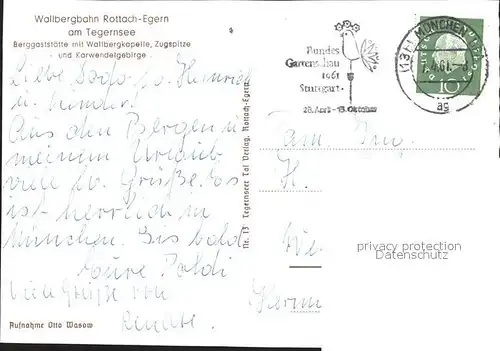 Wallbergbahn Rottach-Egern
am Tegernsee
Berggaststätte mit Wallbergkapelle, Zugspitze
und Karwendelgebirge
Liebe
Heinrich
u. Kinder!
Aus den Bergen u.
meinem Urlaub
viele Grüße. Es
ist herrlich in
München. Bis bald
Eure Poldi
viele Grüße von
Renate.
Aufnahme Otto Wasow
Nr. 13 Tegernseer Tal Verlag, Rottach-Egern
Bundes
Gartenschau
1961
Stuttgart
28. April - 15. Oktober
(13b) MÜNCHEN
7.4.61.-8
ag
10
Fam. Ing.
H.
We
Herm
privacy protection
Datenschutz